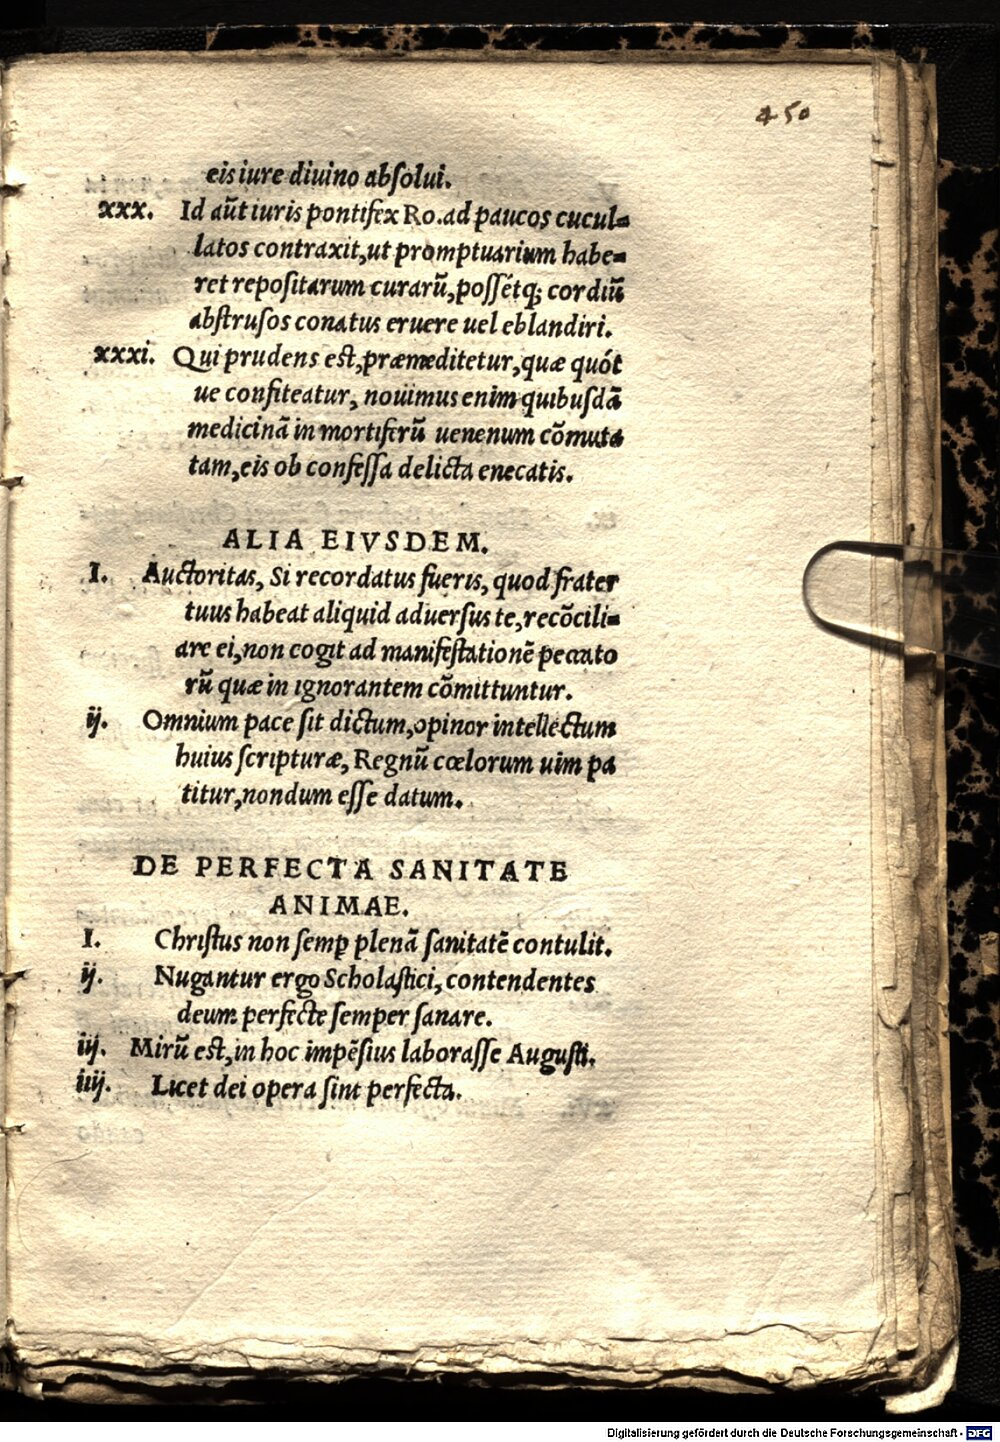 450
eis iure diuino abſolui.
xxx. Id aūt iuris pontifex Ro. ad paucos cucul-
latos contraxit, ut promptuarium habe-
ret repoſitarum curarū, poſſétq; cordiū
abſtruſos conatus eruere uel eblandiri.
xxxi. Qui prudens eſt, præmeditetur, quæ quót
ue confiteatur, nouimus enim quibuſdā
medicinā in mortiferū uenenum cōmuta
tam, eis ob confeſſa delicta enecatis.
ALIA EIVSDEM.
I. Auctoritas, Si recordatus fueris, quod frater
tuus habeat aliquid aduerſus te, recōcili-
are ei, non cogit ad manifeſtationē peccato
rū quæ in ignorantem cōmittuntur.
ij. Omnium pace ſit dictum, opinor intellectum
huius ſcripturæ, Regnū cœlorum uim pa
titur, nondum eſſe datum.
DE PERFECTA SANITATE
ANIMAE.
I. Chriſtus non ſemꝑ plenā ſanitatē contulit.
ij. Nugantur ergo Scholaſtici, contendentes
deum perfecte ſemper ſanare.
iij. Mirū eſt, in hoc impēſius laboraſſe Auguſti.
iiij. Licet dei opera ſint perfecta.
Digitalisierung gefördert durch die Deutsche Forschungsgemeinschaft - DFG